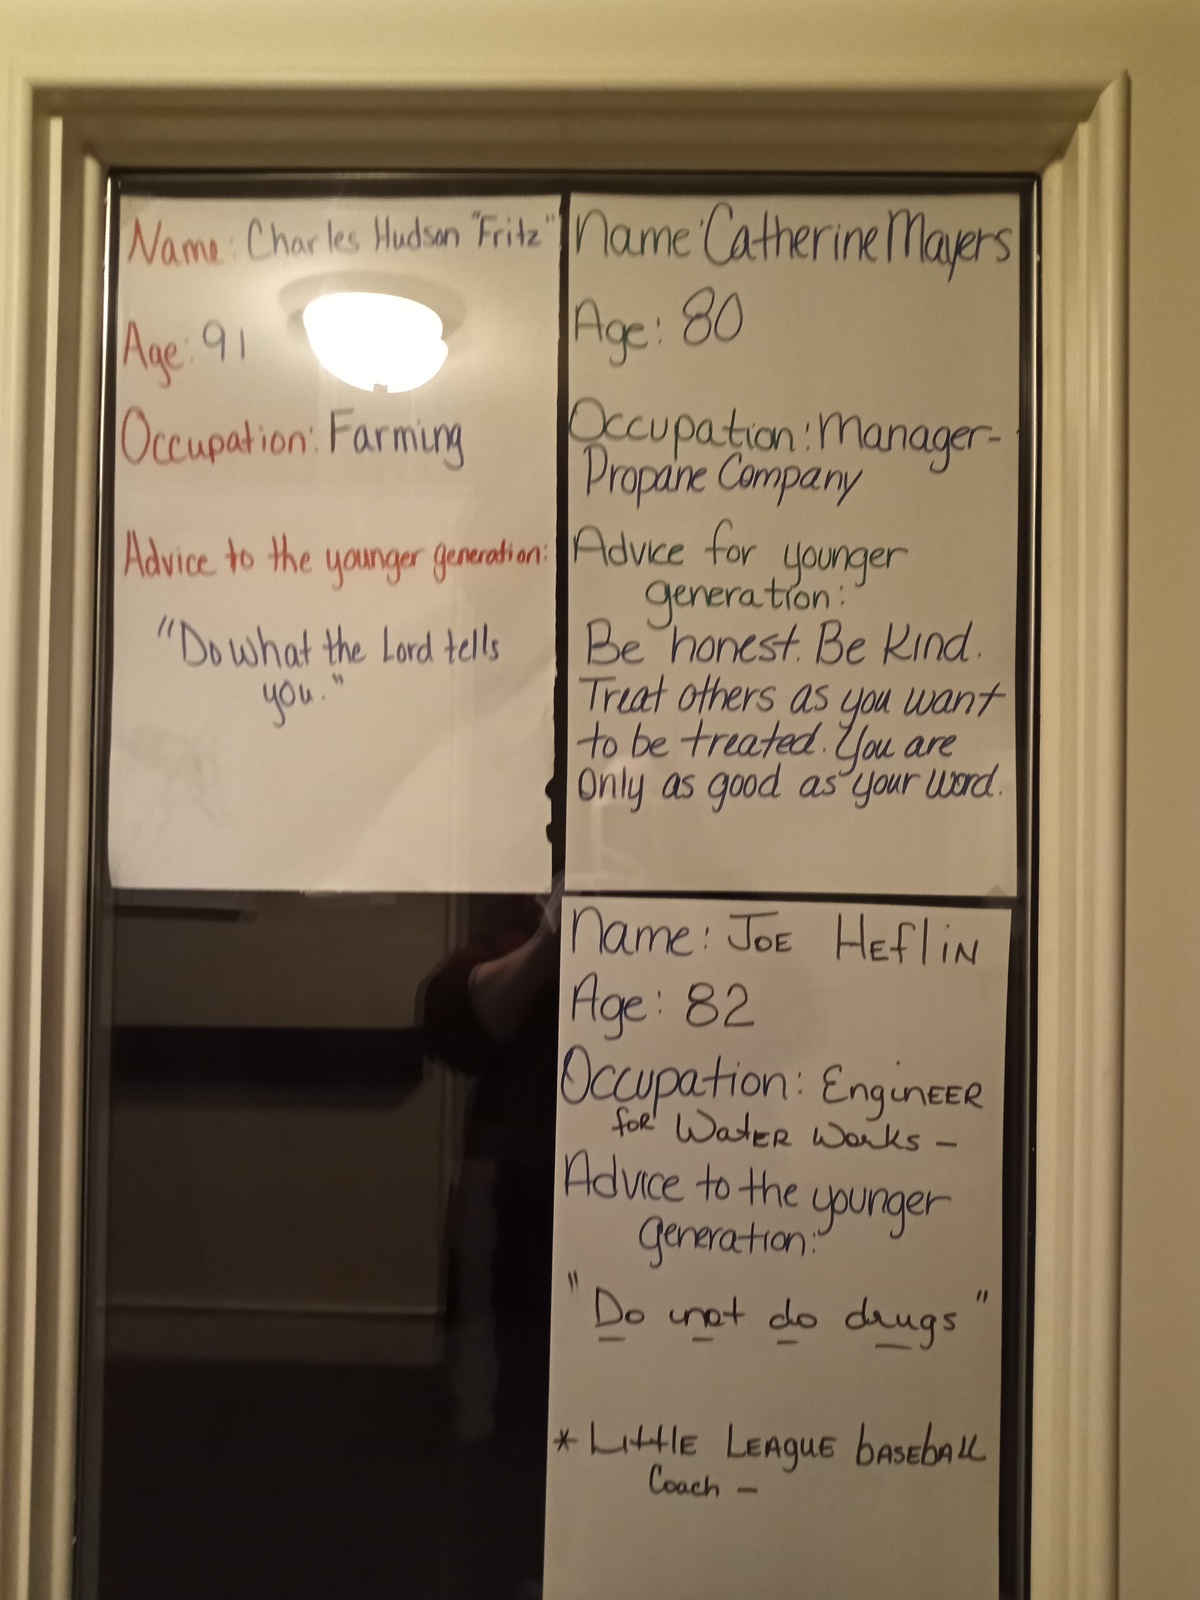 Name: Charles Hudson "Fritz"
Age: 91
Occupation: Farming
Advice to the younger generation:
"Do what the Lord tells
you."
Name: Catherine Mayers
Age: 80
Occupation: Manager-
Propane Company
Advice for younger
generation:
Be honest. Be Kind.
Treat others as you want
to be treated. You are
only as good as your word.
Name: JOE HEflIN
Age: 82
Occupation: EngiNEER
foR WatER Works –
Advice to the younger
generation:
"Do not do drugs"
* LIttlE LEAgUE bASEbALL
Coach –